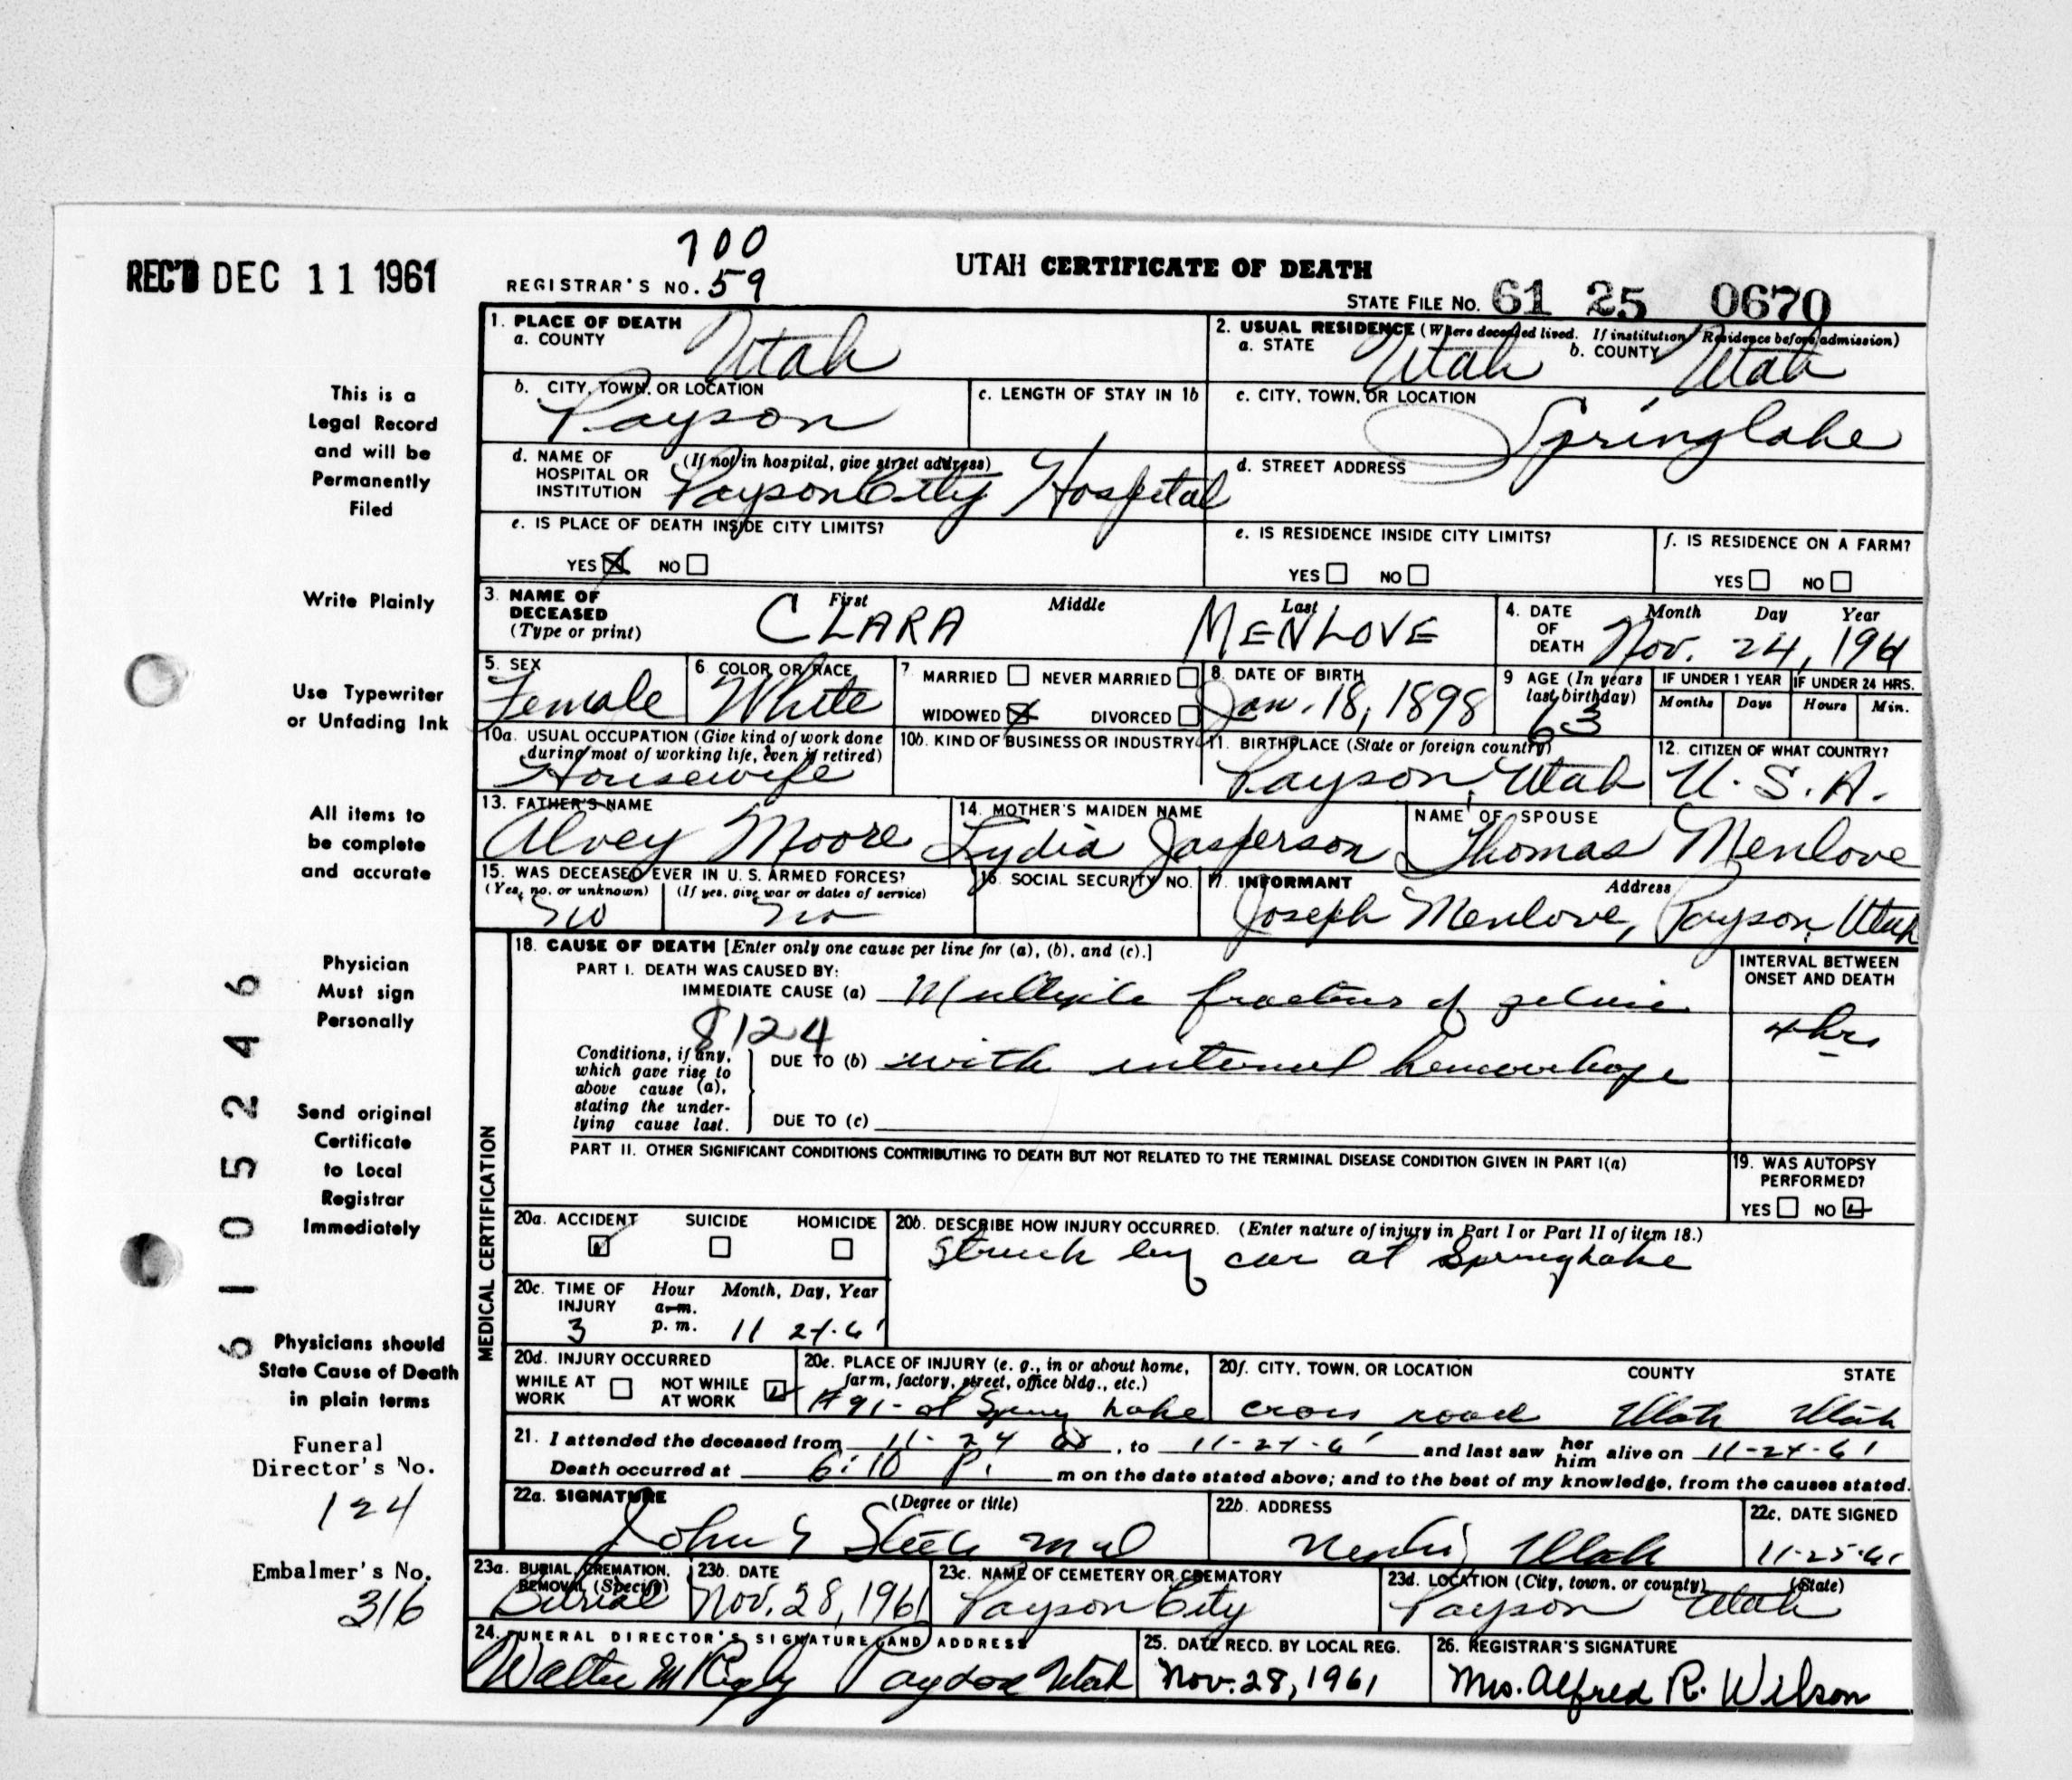 REC'D DEC 11 1961
700
REGISTRAR'S NO. 59
UTAH CERTIFICATE OF DEATH
STATE FILE NO. 61 25 0670
This is a
Legal Record
and will be
Permanently
Filed
Write Plainly
Use Typewriter
or Unfading Ink
All items to
be complete
and accurate
Physician
Must sign
Personally
Send original
Certificate
to Local
Registrar
Immediately
Physicians should
State Cause of Death
in plain terms
Funeral
Director's No.
124
Embalmer's No.
316
6105246
1. PLACE OF DEATH
a. COUNTY Utah
2. USUAL RESIDENCE (Where deceased lived. If institution Residence before admission)
a. STATE Utah b. COUNTY Utah
b. CITY, TOWN, OR LOCATION
Payson
c. LENGTH OF STAY IN 1b
c. CITY, TOWN, OR LOCATION
Springlake
d. NAME OF HOSPITAL OR INSTITUTION (If not in hospital, give street address)
Payson City Hospital
d. STREET ADDRESS
e. IS PLACE OF DEATH INSIDE CITY LIMITS?
YES NO
e. IS RESIDENCE INSIDE CITY LIMITS?
YES NO
f. IS RESIDENCE ON A FARM?
YES NO
3. NAME OF DECEASED (Type or print)
First Middle Last
CLARA MENLOVE
4. DATE OF DEATH Month Day Year
Nov. 24, 1961
5. SEX
Female
6. COLOR OR RACE
White
7 MARRIED NEVER MARRIED
WIDOWED DIVORCED
8. DATE OF BIRTH
Jan. 18, 1898
9 AGE (In years last birthday)
63
IF UNDER 1 YEAR IF UNDER 24 HRS.
Months Days Hours Min.
10a. USUAL OCCUPATION (Give kind of work done during most of working life, even if retired)
Housewife
10b. KIND OF BUSINESS OR INDUSTRY
11. BIRTHPLACE (State or foreign country)
Payson, Utah
12. CITIZEN OF WHAT COUNTRY?
U.S.A.
13. FATHER'S NAME
Alvey Moore
14. MOTHER'S MAIDEN NAME
Lydia Jasperson
NAME OF SPOUSE
Thomas Menlove
15. WAS DECEASED EVER IN U.S. ARMED FORCES?
(Yes, no. or unknown) (If yes, give war or dates of service)
no no
16. SOCIAL SECURITY NO.
17. INFORMANT Address
Joseph Menlove, Payson, Utah
MEDICAL CERTIFICATION
18. CAUSE OF DEATH [Enter only one cause per line for (a), (b), and (c).]
PART I. DEATH WAS CAUSED BY:
IMMEDIATE CAUSE (a) Multiple fractures of pelvis
INTERVAL BETWEEN ONSET AND DEATH
4 hrs
8124
Conditions, if any, which gave rise to above cause (a), stating the underlying cause last.
DUE TO (b) with internal hemorrhage
DUE TO (c)
PART II. OTHER SIGNIFICANT CONDITIONS CONTRIBUTING TO DEATH BUT NOT RELATED TO THE TERMINAL DISEASE CONDITION GIVEN IN PART I(a)
19. WAS AUTOPSY PERFORMED?
YES NO
20a. ACCIDENT SUICIDE HOMICIDE
20b. DESCRIBE HOW INJURY OCCURRED. (Enter nature of injury in Part I or Part II of item 18.)
Struck by car at Springlake
20c. TIME OF INJURY Hour Month, Day, Year
a.m.
3 p.m. 11 24-61
20d. INJURY OCCURRED
WHILE AT WORK NOT WHILE AT WORK
20e. PLACE OF INJURY (e. g., in or about home, farm, factory, street, office bldg., etc.)
#91-at Spring Lake
20f. CITY, TOWN, OR LOCATION COUNTY STATE
cross road Utah Utah
21. I attended the deceased from 11-24, to 11-24-61 and last saw her him alive on 11-24-61
Death occurred at 6:10 P. m on the date stated above; and to the best of my knowledge, from the causes stated.
22a. SIGNATURE (Degree or title)
John Steele MD
22b. ADDRESS
Nephi Utah
22c. DATE SIGNED
11-25-61
23a. BURIAL, CREMATION, REMOVAL (Specify)
Burial
23b. DATE
Nov. 28, 1961
23c. NAME OF CEMETERY OR CREMATORY
Payson City
23d. LOCATION (City, town, or county) (State)
Payson Utah
24. FUNERAL DIRECTOR'S SIGNATURE AND ADDRESS
Walter M Rigby Payson Utah
25. DATE RECD. BY LOCAL REG.
Nov. 28, 1961
26. REGISTRAR'S SIGNATURE
Mrs. Alfred R. Wilson